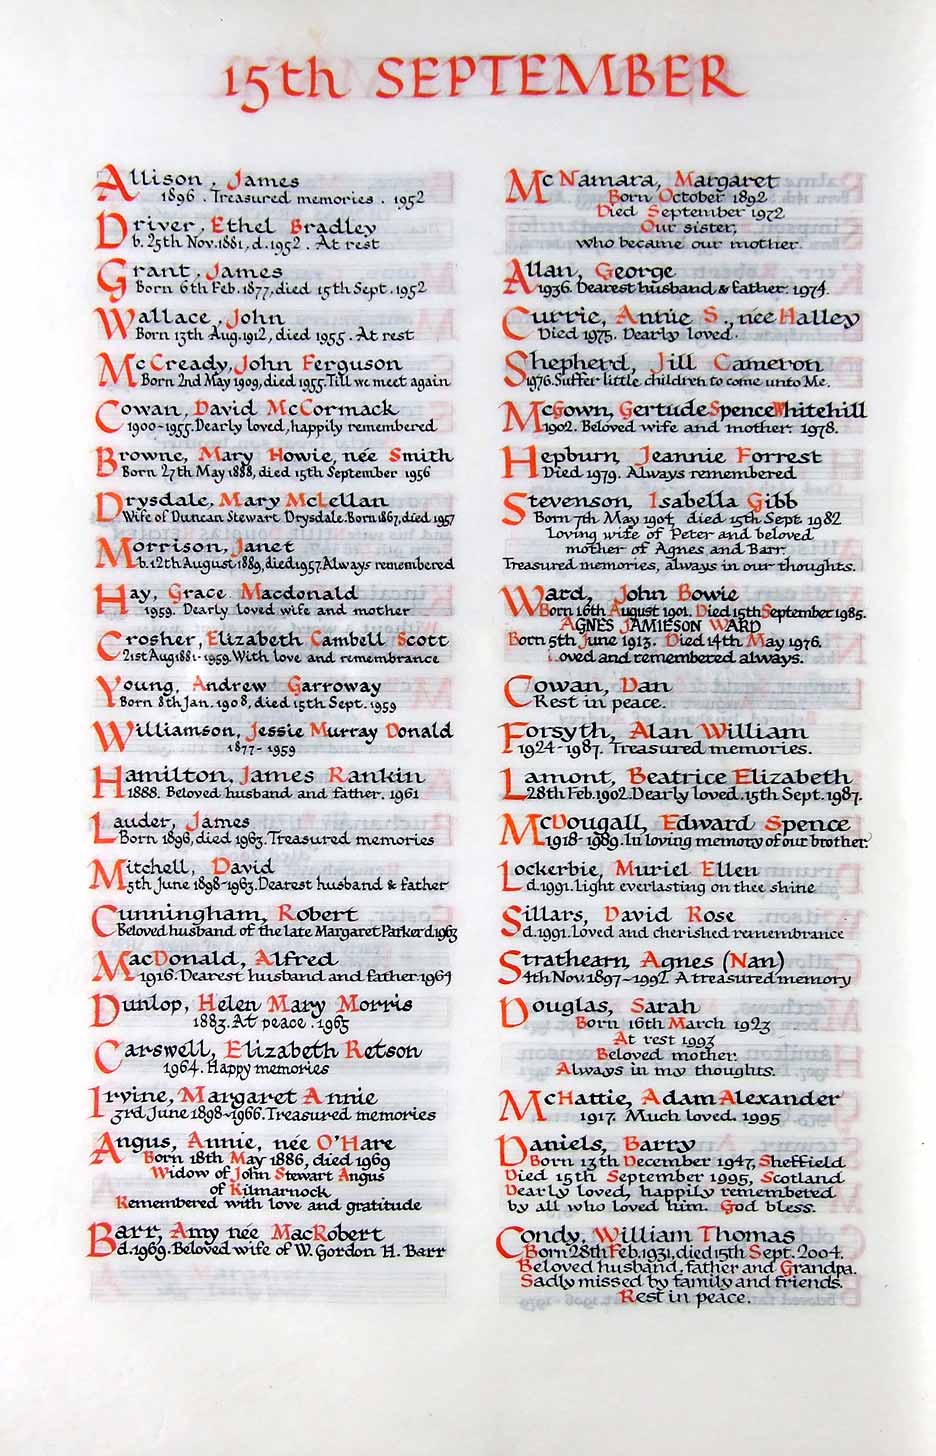 15th SEPTEMBER
Allison, James
1896. Treasured memories. 1952
Driver, Ethel Bradley
b. 25th Nov. 1881, d. 1952. At rest
Grant, James
Born 6th Feb. 1877, died 15th Sept. 1952
Wallace, John
Born 13th Aug. 1912, died 1955. At rest
McCready, John Ferguson
Born 2nd May 1909, died 1955. Till we meet again
Cowan, David McCormack
1900-1955. Dearly loved, happily remembered
Browne, Mary Howie, née Smith
Born 27th May 1888, died 15th September 1956
Drysdale, Mary McLellan
Wife of Duncan Stewart Drysdale. Born 1867, died 1957
Morrison, Janet
b. 12th August 1889, died 1957. Always remembered
Hay, Grace Macdonald
1959. Dearly loved wife and mother
Crosher, Elizabeth Cambell Scott
21st Aug 1881-1959. With love and remembrance
Young, Andrew Garroway
Born 8th Jan. 1908, died 15th Sept. 1959
Williamson, Jessie Murray Donald
1877-1959
Hamilton, James Rankin
1888. Beloved husband and father. 1961
Lauder, James
Born 1896, died 1963. Treasured memories
Mitchell, David
5th June 1898-1963. Dearest husband & father
Cunningham, Robert
Beloved husband of the late Margaret Parker d. 1963
MacDonald, Alfred
1916. Dearest husband and father. 1964
Dunlop, Helen Mary Morris
1883. At peace. 1965
Carswell, Elizabeth Retson
1964. Happy memories
Irvine, Margaret Annie
3rd June 1898-1966. Treasured memories
Angus, Annie, née O'Hare
Born 18th May 1886, died 1969
Widow of John Stewart Angus
of Kilmarnock
Remembered with love and gratitude
Barr, Amy née MacRobert
d. 1969. Beloved wife of W. Gordon H. Barr
McNamara, Margaret
Born October 1892
Died September 1972
Our sister,
who became our mother.
Allan, George
1936. Dearest husband & father. 1974.
Currie, Annie S., née Halley
Died 1975. Dearly loved.
Shepherd, Jill Cameron
1976. Suffer little children to come unto Me.
McGown, Gertude Spence Whitehill
1902. Beloved wife and mother. 1978.
Hepburn, Jeannie Forrest
Died 1979. Always remembered
Stevenson, Isabella Gibb
Born 7th May 1904, died 15th Sept. 1982
Loving wife of Peter and beloved
mother of Agnes and Barr.
Treasured memories, always in our thoughts.
Ward, John Bowie
Born 16th August 1901. Died 15th September 1985.
AGNES JAMIESON WARD
Born 5th June 1913. Died 14th May 1976.
Loved and remembered always.
Cowan, Dan
Rest in peace.
Forsyth, Alan William
1924-1987. Treasured memories.
Lamont, Beatrice Elizabeth
28th Feb. 1902. Dearly loved. 15th Sept. 1987.
McDougall, Edward Spence
1918-1989. In loving memory of our brother.
Lockerbie, Muriel Ellen
d. 1991. Light everlasting on thee shine
Sillars, David Rose
d. 1991. Loved and cherished remembrance
Strathearn, Agnes (Nan)
4th Nov. 1897-1992. A treasured memory
Douglas, Sarah
Born 16th March 1923
At rest 1993
Beloved mother.
Always in my thoughts.
McHattie, Adam Alexander
1917. Much loved. 1995
Daniels, Barry
Born 13th December 1947, Sheffield
Died 15th September 1995, Scotland
Dearly loved, happily remembered
by all who loved him. God bless.
Condy, William Thomas
Born 28th Feb. 1931, died 15th Sept. 2004.
Beloved husband, father and Grandpa.
Sadly missed by family and friends.
Rest in peace.